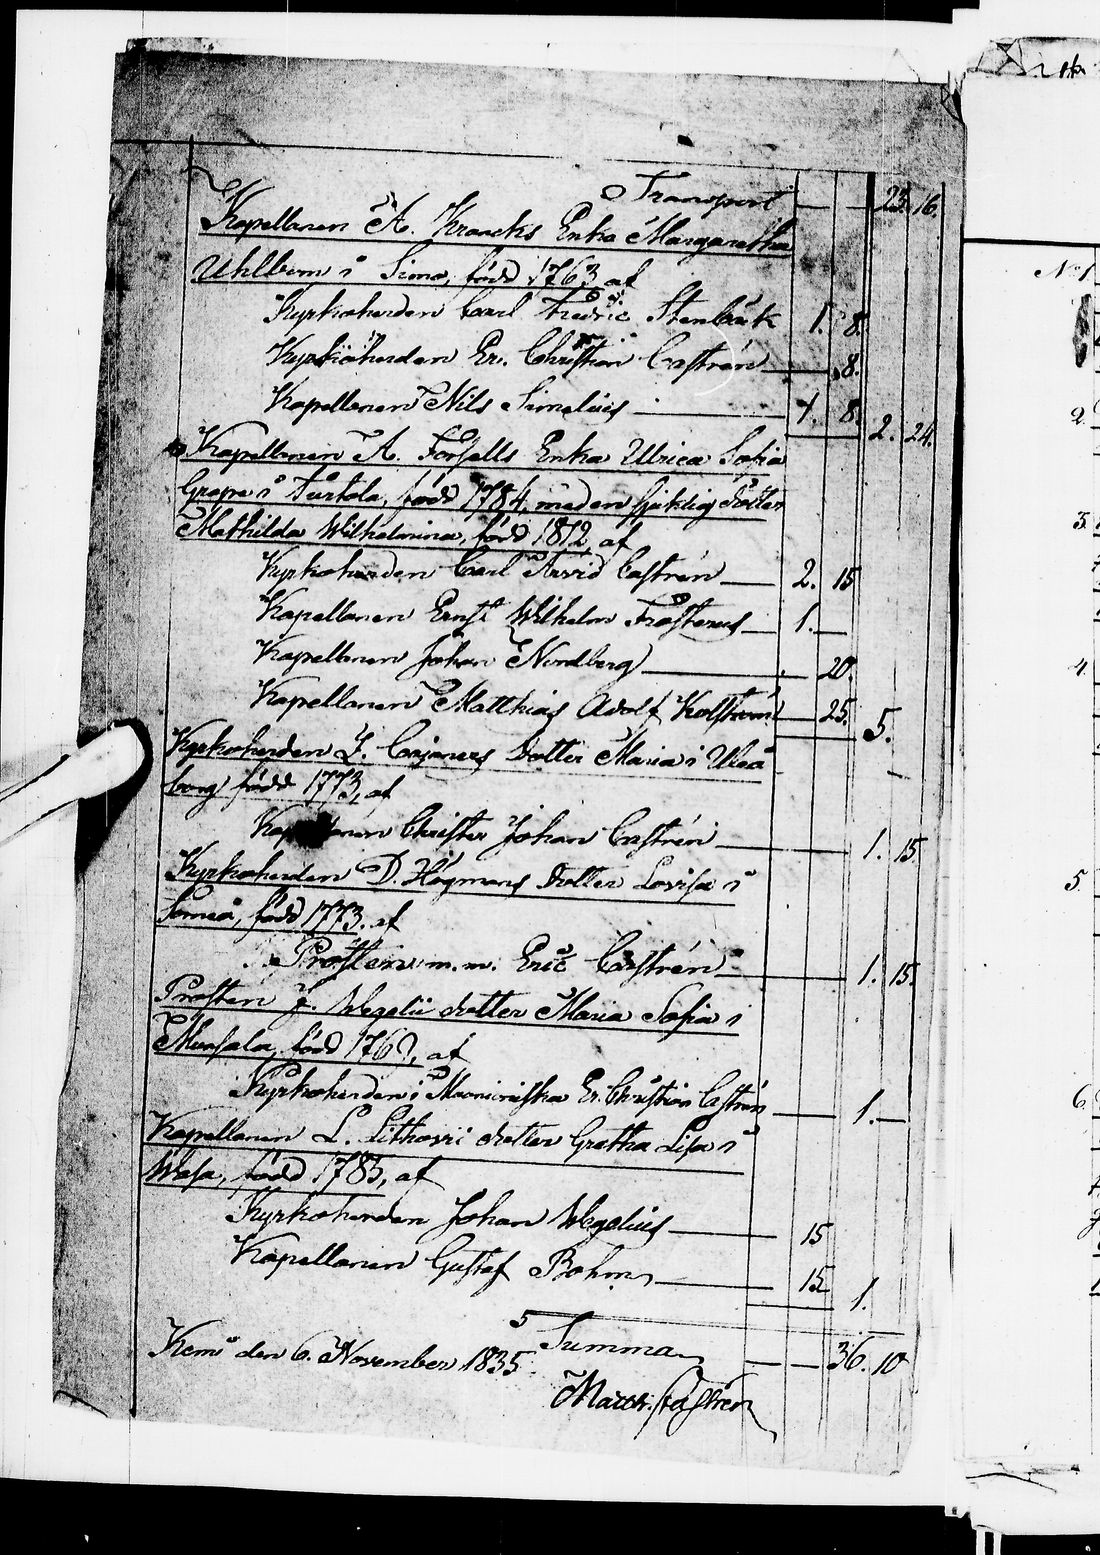 Transport — — 23. 16.
Kapellanen A. Krancks Enka Margaretha
Uhlbom i Simo, född 1763 af
Kyrkoherden Carl Fredric Stenbäck 1. 8.
Kyrkoherden Er. Christian Castrén — 8.
Kapellanen Nils Simelius — 1. 8. 2. 24.
Kapellanen A. Forssells Enka Ulrica Sofia
Grape i Turtola, född 1784, med en sjuklig dotter
Mathilda Wilhelmina, född 1812, af
Kyrkoherden Carl Arvid Castrén — 2. 15
Kapellanen Ernst Wilhelm Frosterus — 1. —
Kapellanen Johan Nordberg — 20.
Kapellanen Matthias Adolf Kolström — 25. 5. —
Kyrkoherden J. Cajaners Dotter Maria i Uleå
borg, född 1773, af
Kapellanen Christer Johan Castrén — 1. 15.
Kyrkoherden D. Högmans Dotter Lovisa i
född 1773. af
Prosten m. m. Eric Castrén — 1. 15.
Prosten J. Wegelii dotter Maria Sofia i
Munsala, född af
Kyrkoherden i Muonioniska Er. Christian Castrén — 1. —
Kapellanen L. Lithovii dotter Gretha Lisa i
Wasa, född 1785, af
Kyrkoherden Johan Wegelius — 15
Kapellanen Gustaf Bohm — 15 1.
Summa — — 36. 10
Kemi den 6. November 1835.
Matth. Castrén
No 1
2.
3.
4.
5.
6.